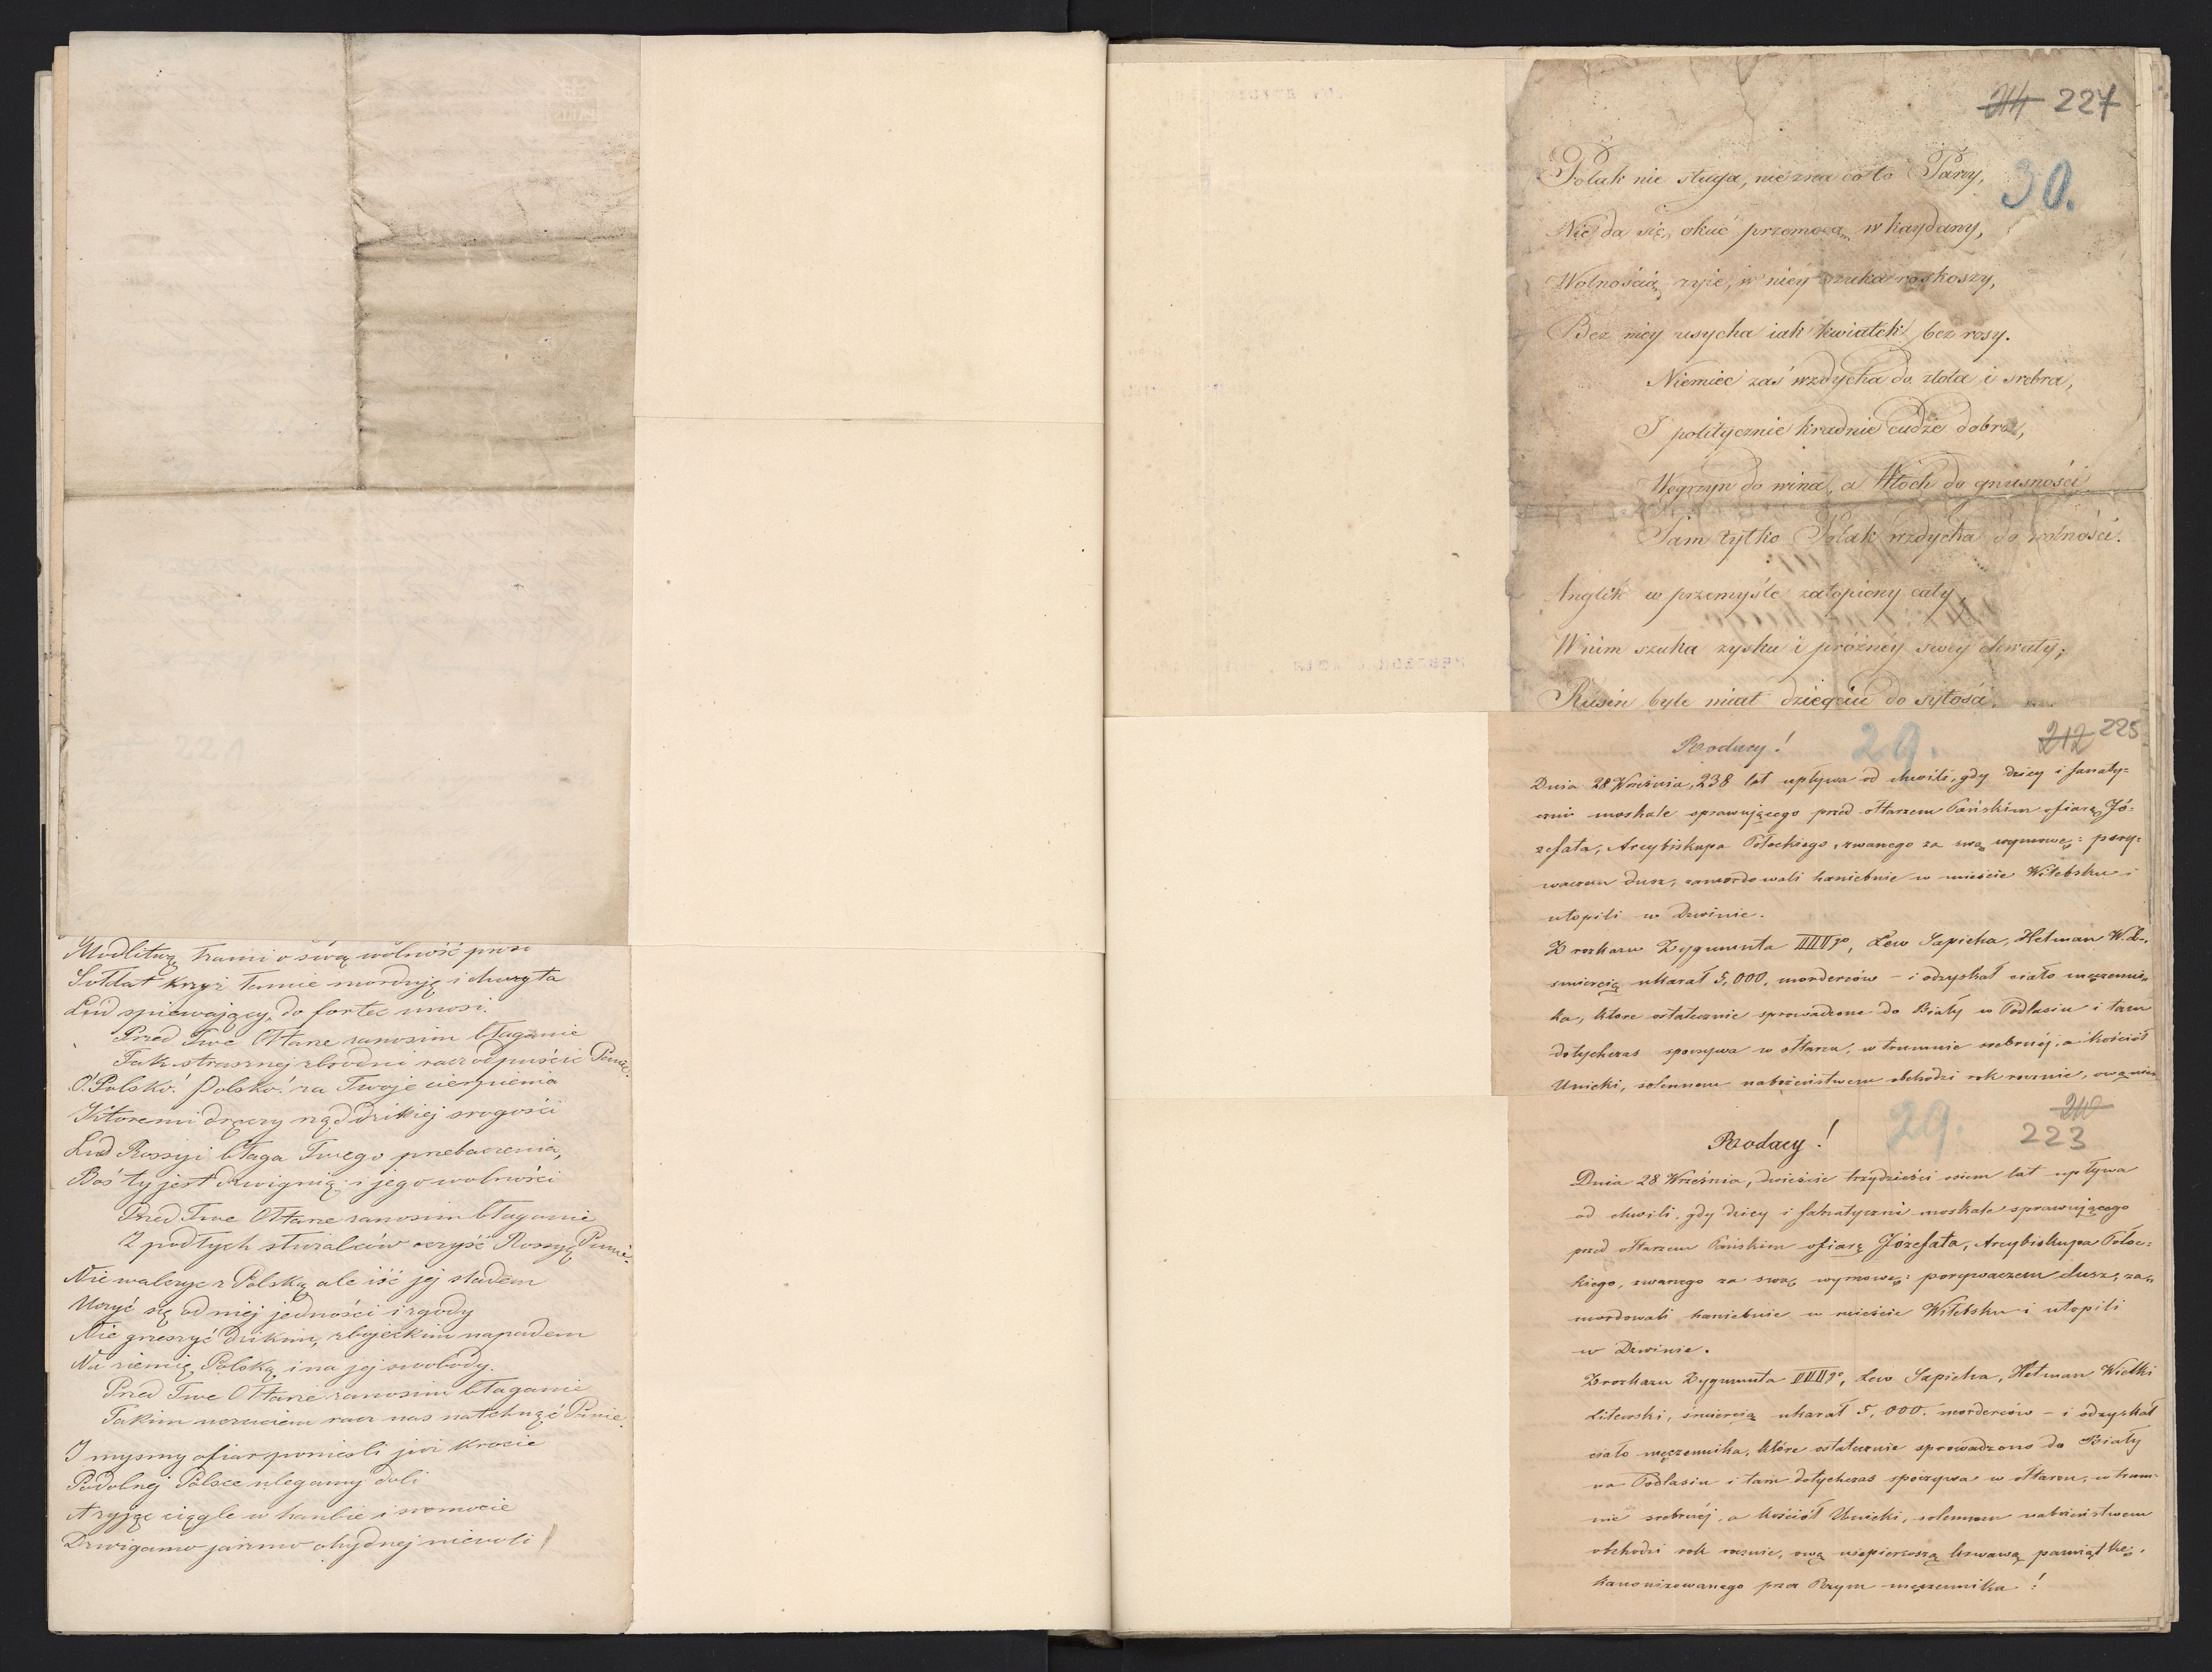 Modlitwą, łzami o swą wolność prosi
Sołdat krzyż łamie morduję i chwyta
Lud spiewający, do fortec unosi.
Przed Twe Ołtarze zanosim błaganie
Tak strasznej zbrodni racz odpuścić Panie.
O! Polsko! Polsko! za Twoje cierpienia
Któremi dręczy rząd dzikiej srogości
Lud Rossyi błaga Twego przebaczenia,
Boś ty jest dzwignią i jego wolności
Przed Twe Ołtarze zanosim błaganie
Z podłych służalców oczyść Rossyą Panie.
Nie walczyć z Polską ale iść jej sladem
Uczyć się od niej jedności i zgody
Nie grzeszyć dzikim, zbojeckim napadem
Na ziemię Polską i na jej swobody.
Przed Twe Ołtarze zanosim błaganie
Takim uczuciem racz nas natchnąć Panie.
I mysmy ofiar ponieśli już krocie
Podobnej Polsce ulegamy doli
A żyjąc ciągle w hanbie i sromocie
Dzwigamy jarzmo ohydnej niewoli
214 227
30.
Polak nie sługa, nie zna co to Pany,
Nie da się, okuć przemocą w kaydany,
Wolnością żyie, w niey szuka roskoszy,
Bez niey usycha iak kwiatek bez rosy.
Niemiec zaś wzdycha do złota i srebra,
I politycznie kradnie cudze dobra,
Węgrzyn do wina, a Włoch do gnusności
Sam tylko Polak wzdycha do wolności.
Anglik w przemyśle zatopiony cały
W nim szuka zysku i próżney swey chwały;
Rusin byle miał dziegciu do sytości,
Rodacy! 29. 212 225
Dnia 28 Września, 238 lat upływa od chwili, gdy dzicy i fanaty=
czni moskale sprawującego przed ołtarzem Pańskim ofiarę Jó=
zefata, Arcybiskupa Połockiego, zwanego za swą wymowę: pory=
waczem dusz, zamordowali haniebnie w mieście Witebsku i
utopili w Dzwinie.
Z rozkazu Zygmunta IIIgo, Lew Sapieha, Hetman W. Lit.,
smiercią ukarał 5,000, morderców – i odzyskał ciało męczenni=
ka, które ostatecznie sprowadzone do Biały w Podlasiu i tam
dotychczas spoczywa w ołtarzu, w trumnie srebrnéj, a kościół
Unicki, solennem nabożeństwem obchodzi rok rocznie, ową
Rodacy! 29. 210
223
Dnia 28 Września, dwieście trzydzieści osiem lat upływa
od chwili, gdy dzicy i fanatyczni moskale sprawującego
przed ołtarzem Pańskim ofiarę Józefata, Arcybiskupa Połoc=
kiego, zwanego za swą wymowę: porywaczem dusz, za=
mordowali haniebnie w mieście Witebsku i utopili
w Dzwinie.
Z rozkazu Zygmunta IIIgo, Lew Sapieha, Hetman Wielki
Litewski, śmiercią ukarał 5,000. morderców – i odzyskał
ciało męczennika, które ostatecznie sprowadzono do Biały
na Podlasiu i tam dotychczas spoczywa w ołtarzu, w trum=
nie srebrnéj, a kościół Unicki, solennem nabożeństwem
obchodzi rok rocznie, ową krwawą pamiątkę,
kanonizowanego przez Rzym męczennika!